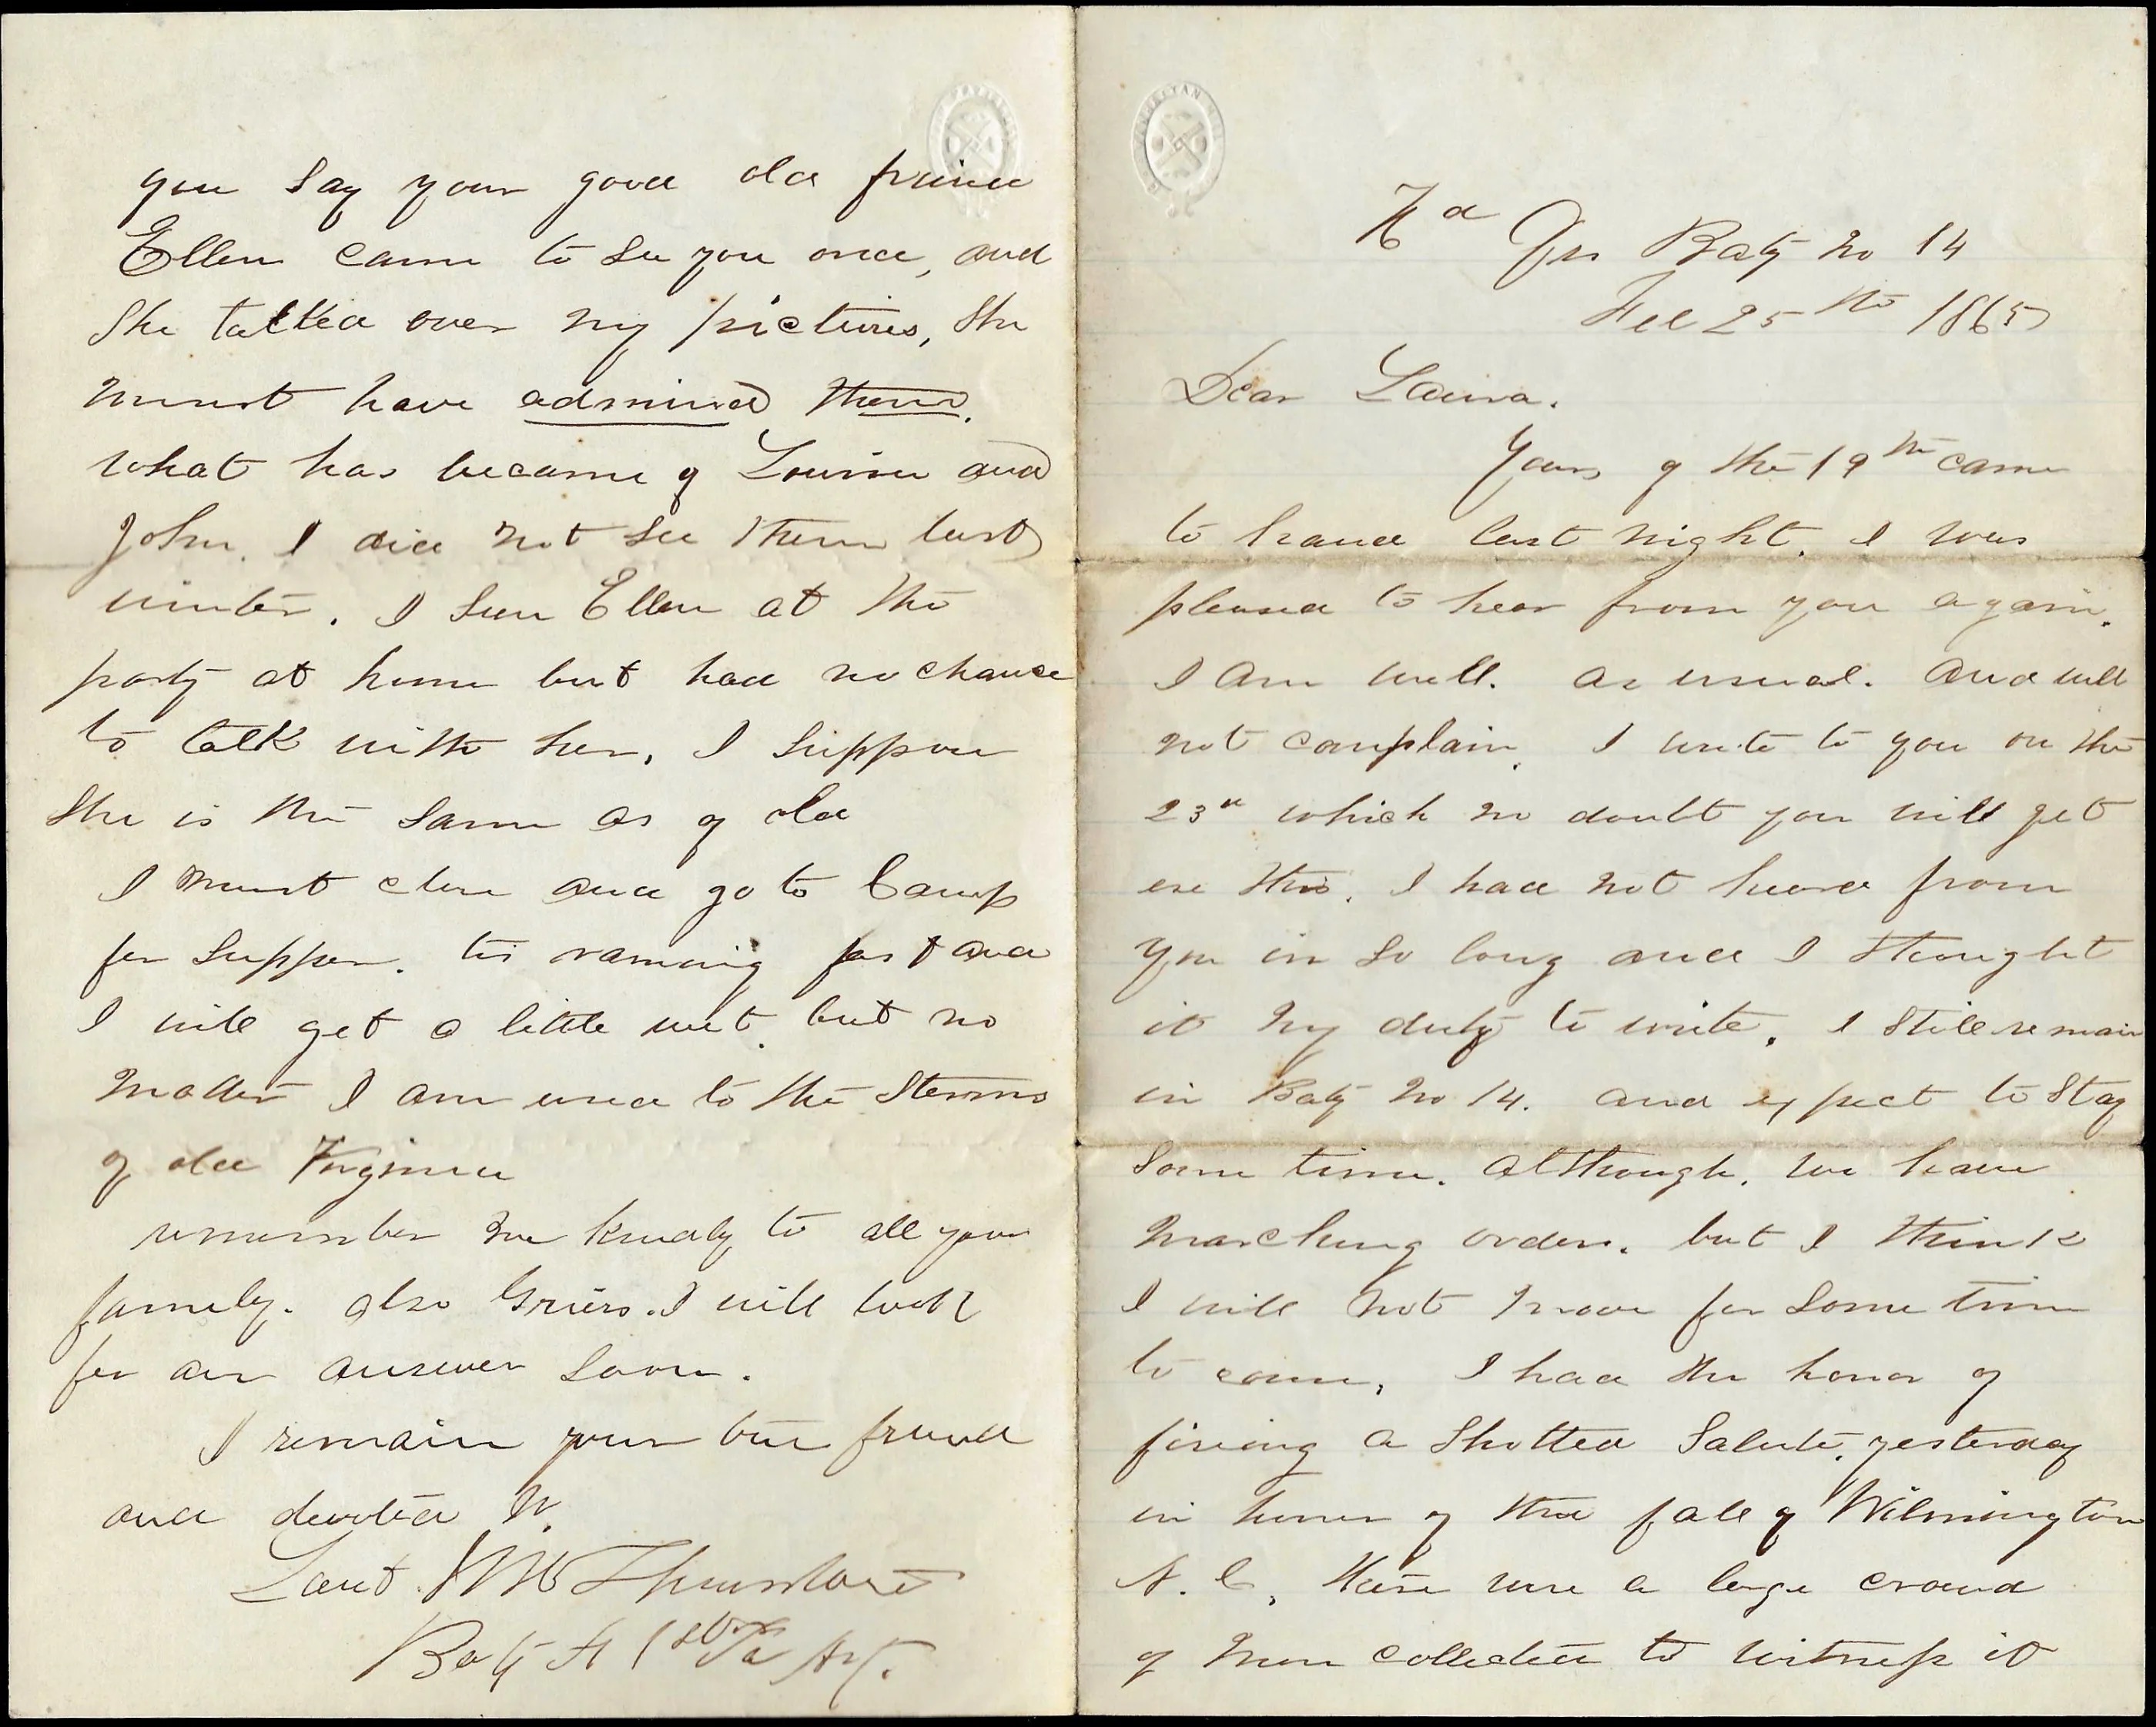 Hd Qrs Baty No 14
Feb 25th 1865
Dear Laura.
Yours of the 19th came
to hand last night. I was
pleased to hear from you again.
I am well. as usual. and will
not complain. I write to you on the
23d which no doubt you will get
ere this. I had not heard from
you in so long and I thought
it my duty to write. I still remain
in Baty No 14. and expect to stay
some time. although. we have
marching orders. but I think
I will not move for some time
to come. I had the honor of
firing a Shotted Salute, yesterday
in honor of the fall of Wilmington
N. C, there were a large crowd
of men collected to witness it
you say your good old friend
Ellen came to see you once, and
she talked over my pictures, she
must have admired them.
what has became of Louisa and
John. I did not see them last
winter. I seen Ellen at the
party at home but had no chance
to talk with her, I suppose
she is the same as of old
I must close and go to Camp
for supper. tis raining fast and
I will get a little wet. but no
matter I am used to the storms
of old Virginia
remember me kindly to all your
family. also Griers. I will look
for an answer soon.
I remain your true friend
and devoted W.
Laut
Baty A 1st Pa Art.